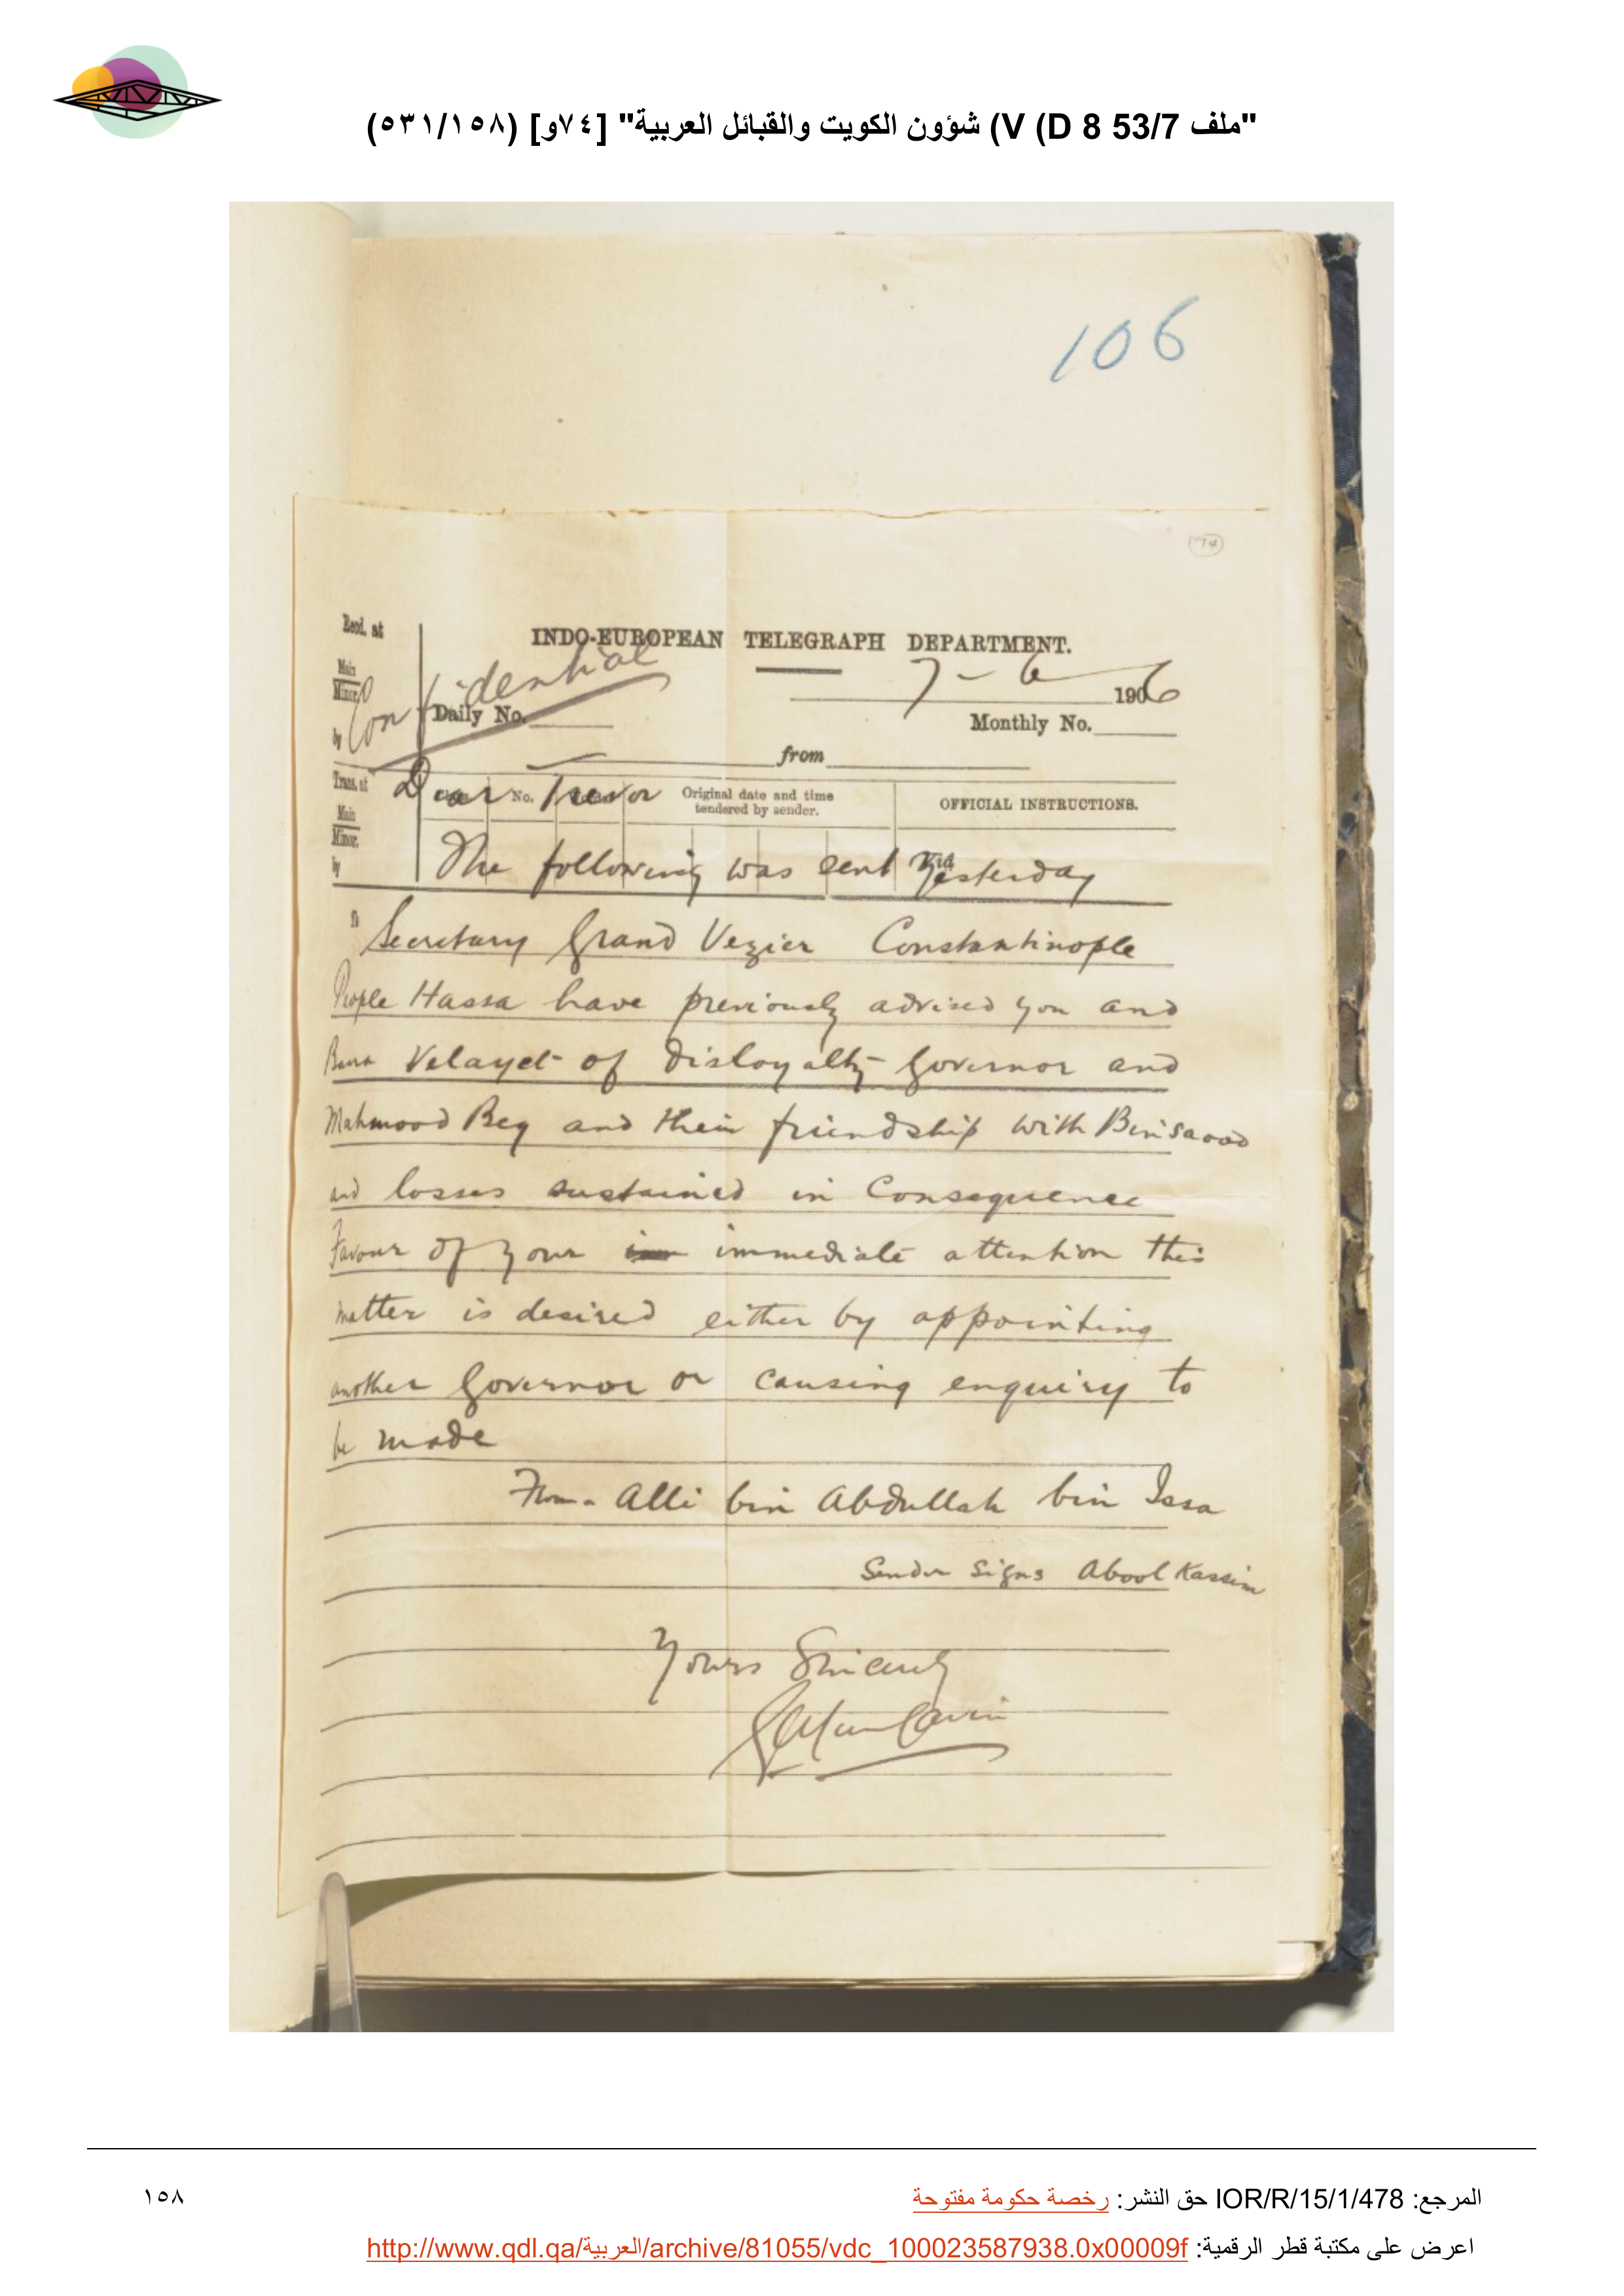 "ملف 53/7 D 8) V) شؤون الكويت والقبائل العربية" [٧٤و] (٥٣١/١٥٨)
106
74
Recd. at
INDO-EUROPEAN TELEGRAPH DEPARTMENT.
Confidential
7-6 1906
Main
Minor
Daily No.
Monthly No.
by
from
Trans. at
Dear Trevor
No.
Original date and time
tendered by sender.
OFFICIAL INSTRUCTIONS.
Main
Minor.
by
The following was sent yesterday
To
Secretary Grand Vezier Constantinople
People Hassa have previously advised you and
Busra Velayet of disloyalty Governor and
Mahmood Beg and their friendship with Binsaood
and losses sustained in Consequence
Favour of your immediate attention this
matter is desired either by appointing
another Governor or causing enquiry to
be made
From Alli bin Abdullah bin Issa
Sender signs Abool Kassim
Yours Sincerely
المرجع: IOR/R/15/1/478 حق النشر: رخصة حكومة مفتوحة
١٥٨
اعرض على مكتبة قطر الرقمية: http://www.qdl.qa/العربية/archive/81055/vdc_100023587938.0x00009f